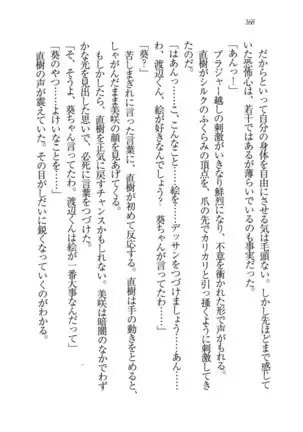 だからといって自分の身体を自由にさせる気は毛頭ない。しかし先ほどまで感じて
いた恐怖心は、若干ではあるが薄らいでいるのも事実だった。
「あんっ！」
ブラジャー越しの刺激がいきなり鮮烈になり、不意を衝かれた形で声がもれる。
直樹がシルクのふくらみの頂点を、爪の先でカリカリと引っ掻くように刺激してき
たのだ。
「はあんっ……こ、こんなこと……絵を……デッサンをつづけましょう……あん……
わ、渡辺くん、絵が好きなんでしょう？　葵ちゃんが言ってたわ……」
「葵？」
苦しまぎれに言った言葉に、直樹が初めて反応する。直樹は手の動きをとめると、
しゃがんだまま美咲の顔を見あげてくる。
もしかしたら、直樹を正気に戻すチャンスかもしれない。美咲は暗闇のなかでわず
かな光を見出した思いで、必死に言葉をつづけた。
「そ、そうよ、葵ちゃん言ってたわ。渡辺くんは絵が一番大事なんだって」
「葵のやつ……よけいなことを……」
直樹の声が震えていた。その目がしだいに鋭くなっていくのがわかる。
168